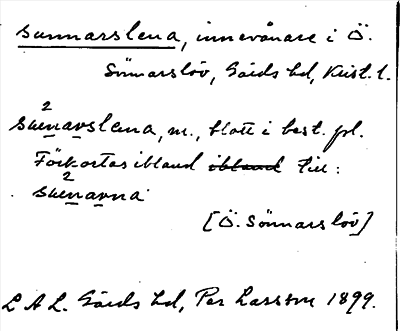 sunnarslena, innevånare i Ö.
Sönnarslöv, Gärds hd, Krist. l.
m., blott i best. pl.
Förkortas ibland ibland till:
[Ö. Sönnarslöv]
L A L. Gärds hd, Per Larsson 1899.